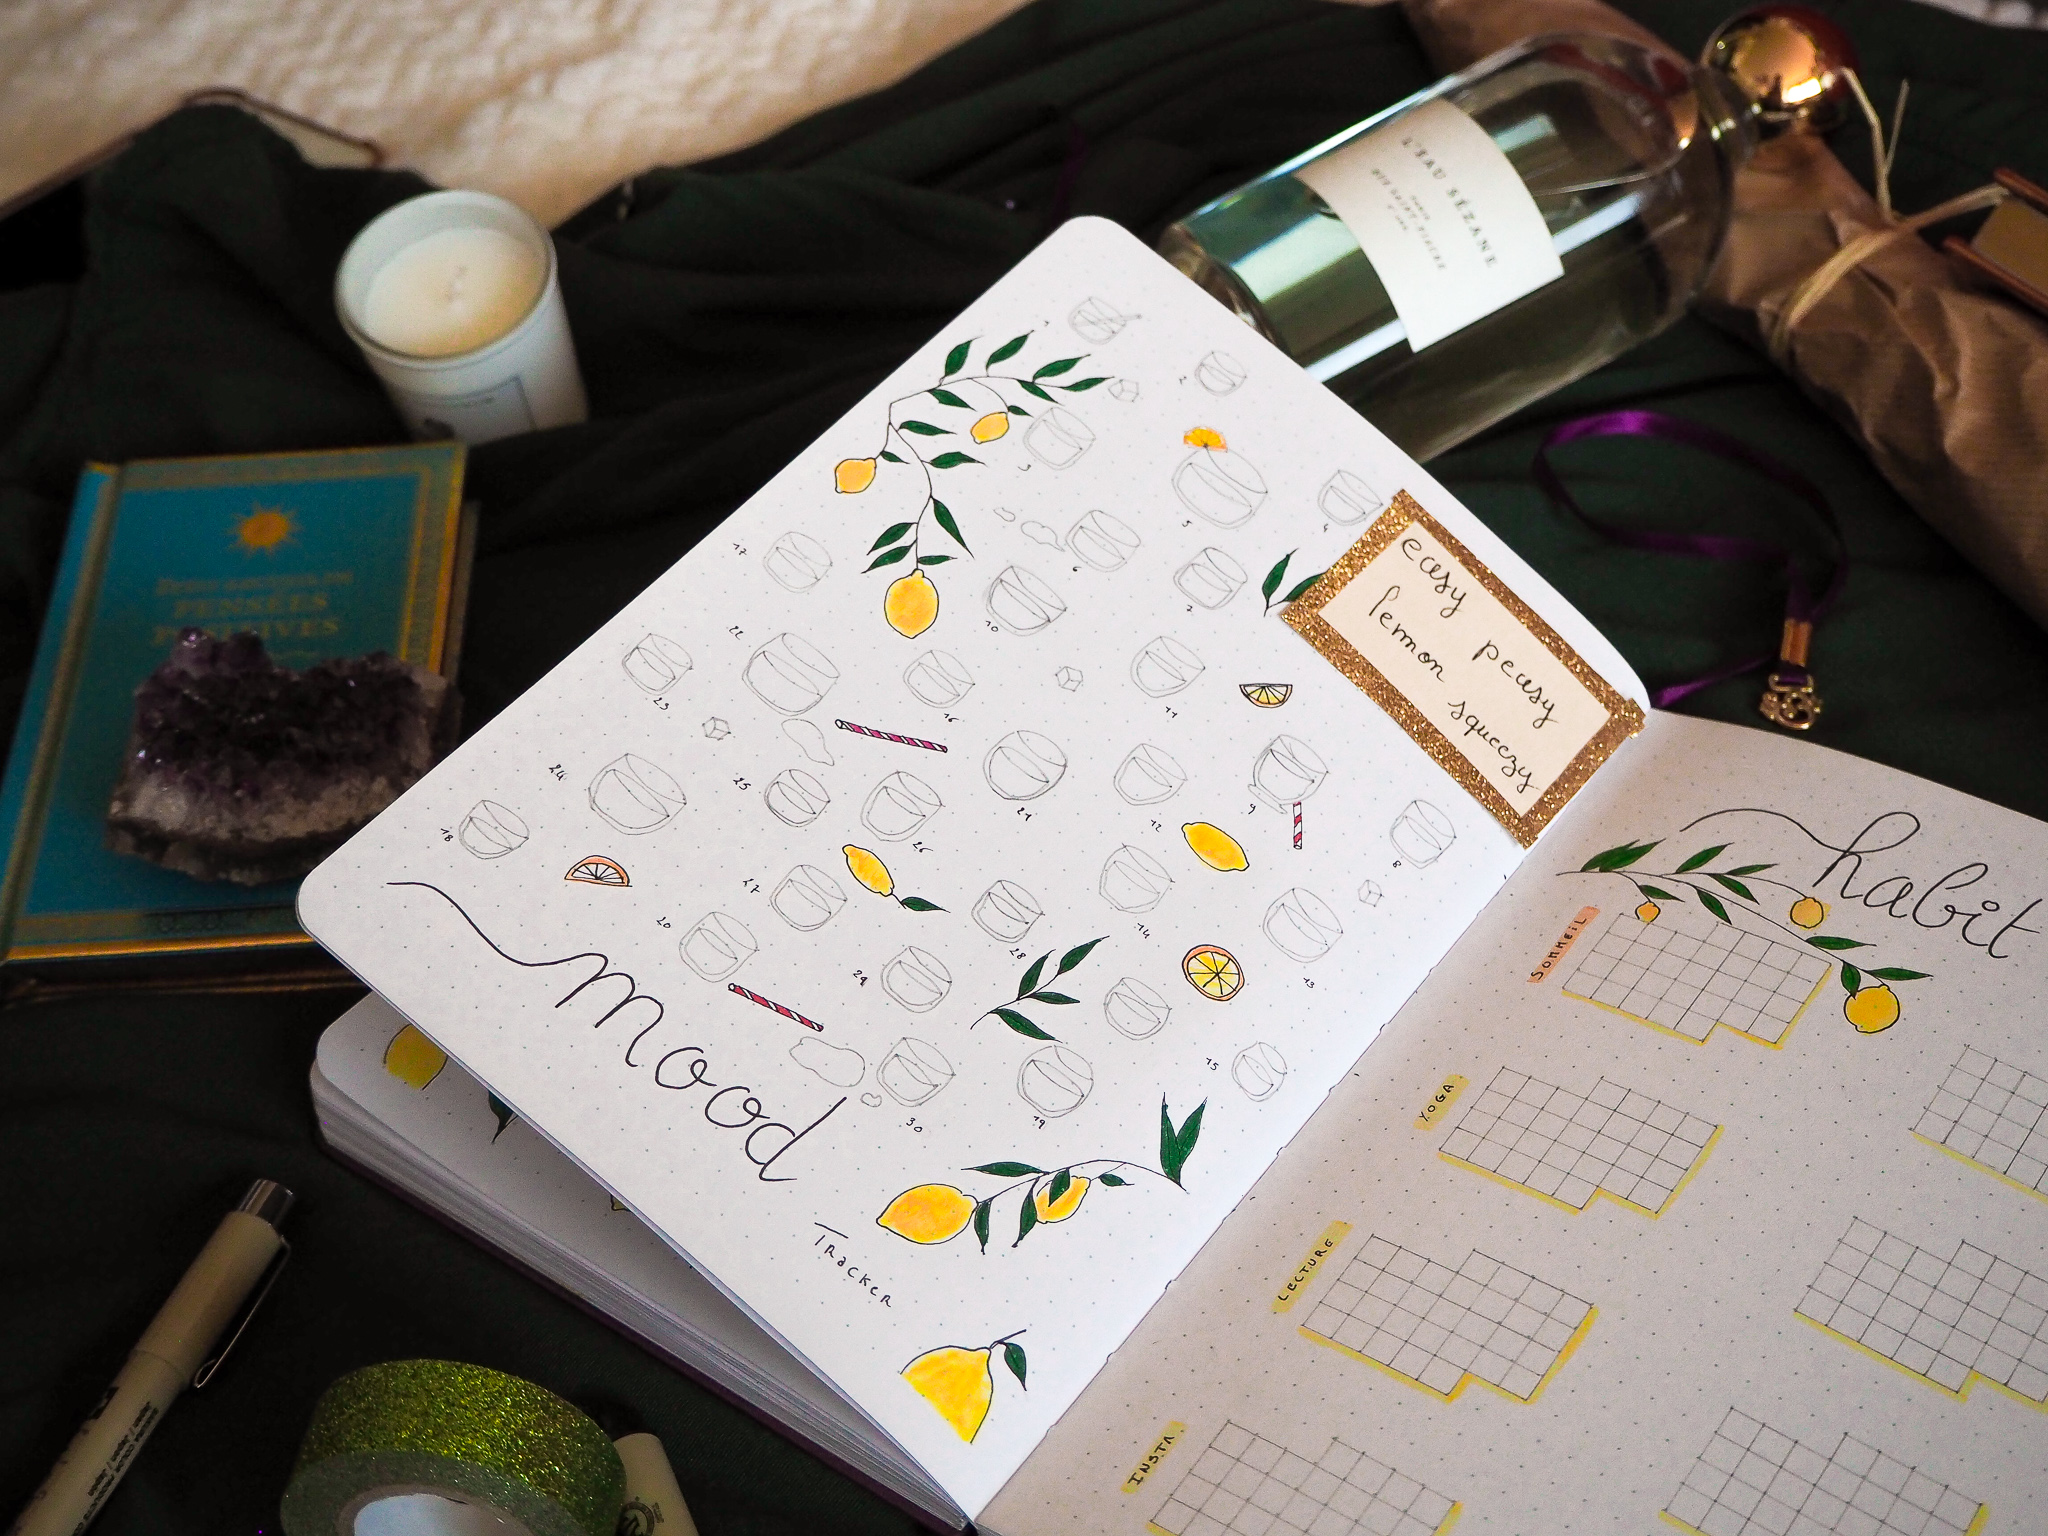 L'EAU SÉZANE
PARIS
PENSÉES
POSITIVES
easy peasy
lemon squeezy
1
2
3
5
4
6
7
17
10
22
23
16
11
24
25
21
9
18
26
12
8
27
20
28
14
29
13
15
30
19
mood
Tracker
habit
SOMMEIL
YOGA
LECTURE
INSTA